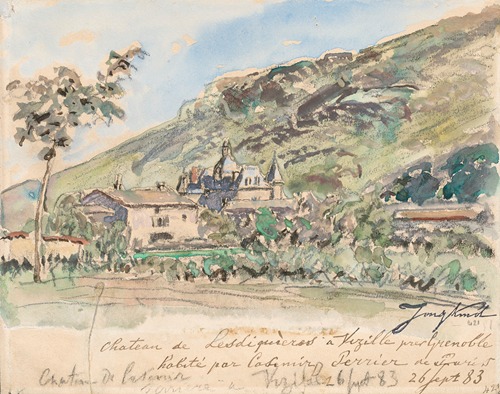 Jongkind
Chateau de Lesdiguières à Vizille près Grenoble
habité par Casimir Perrier de Paris
Chateau de Casimir 26 sept 83
Perrier à Vizille 26 sept 83